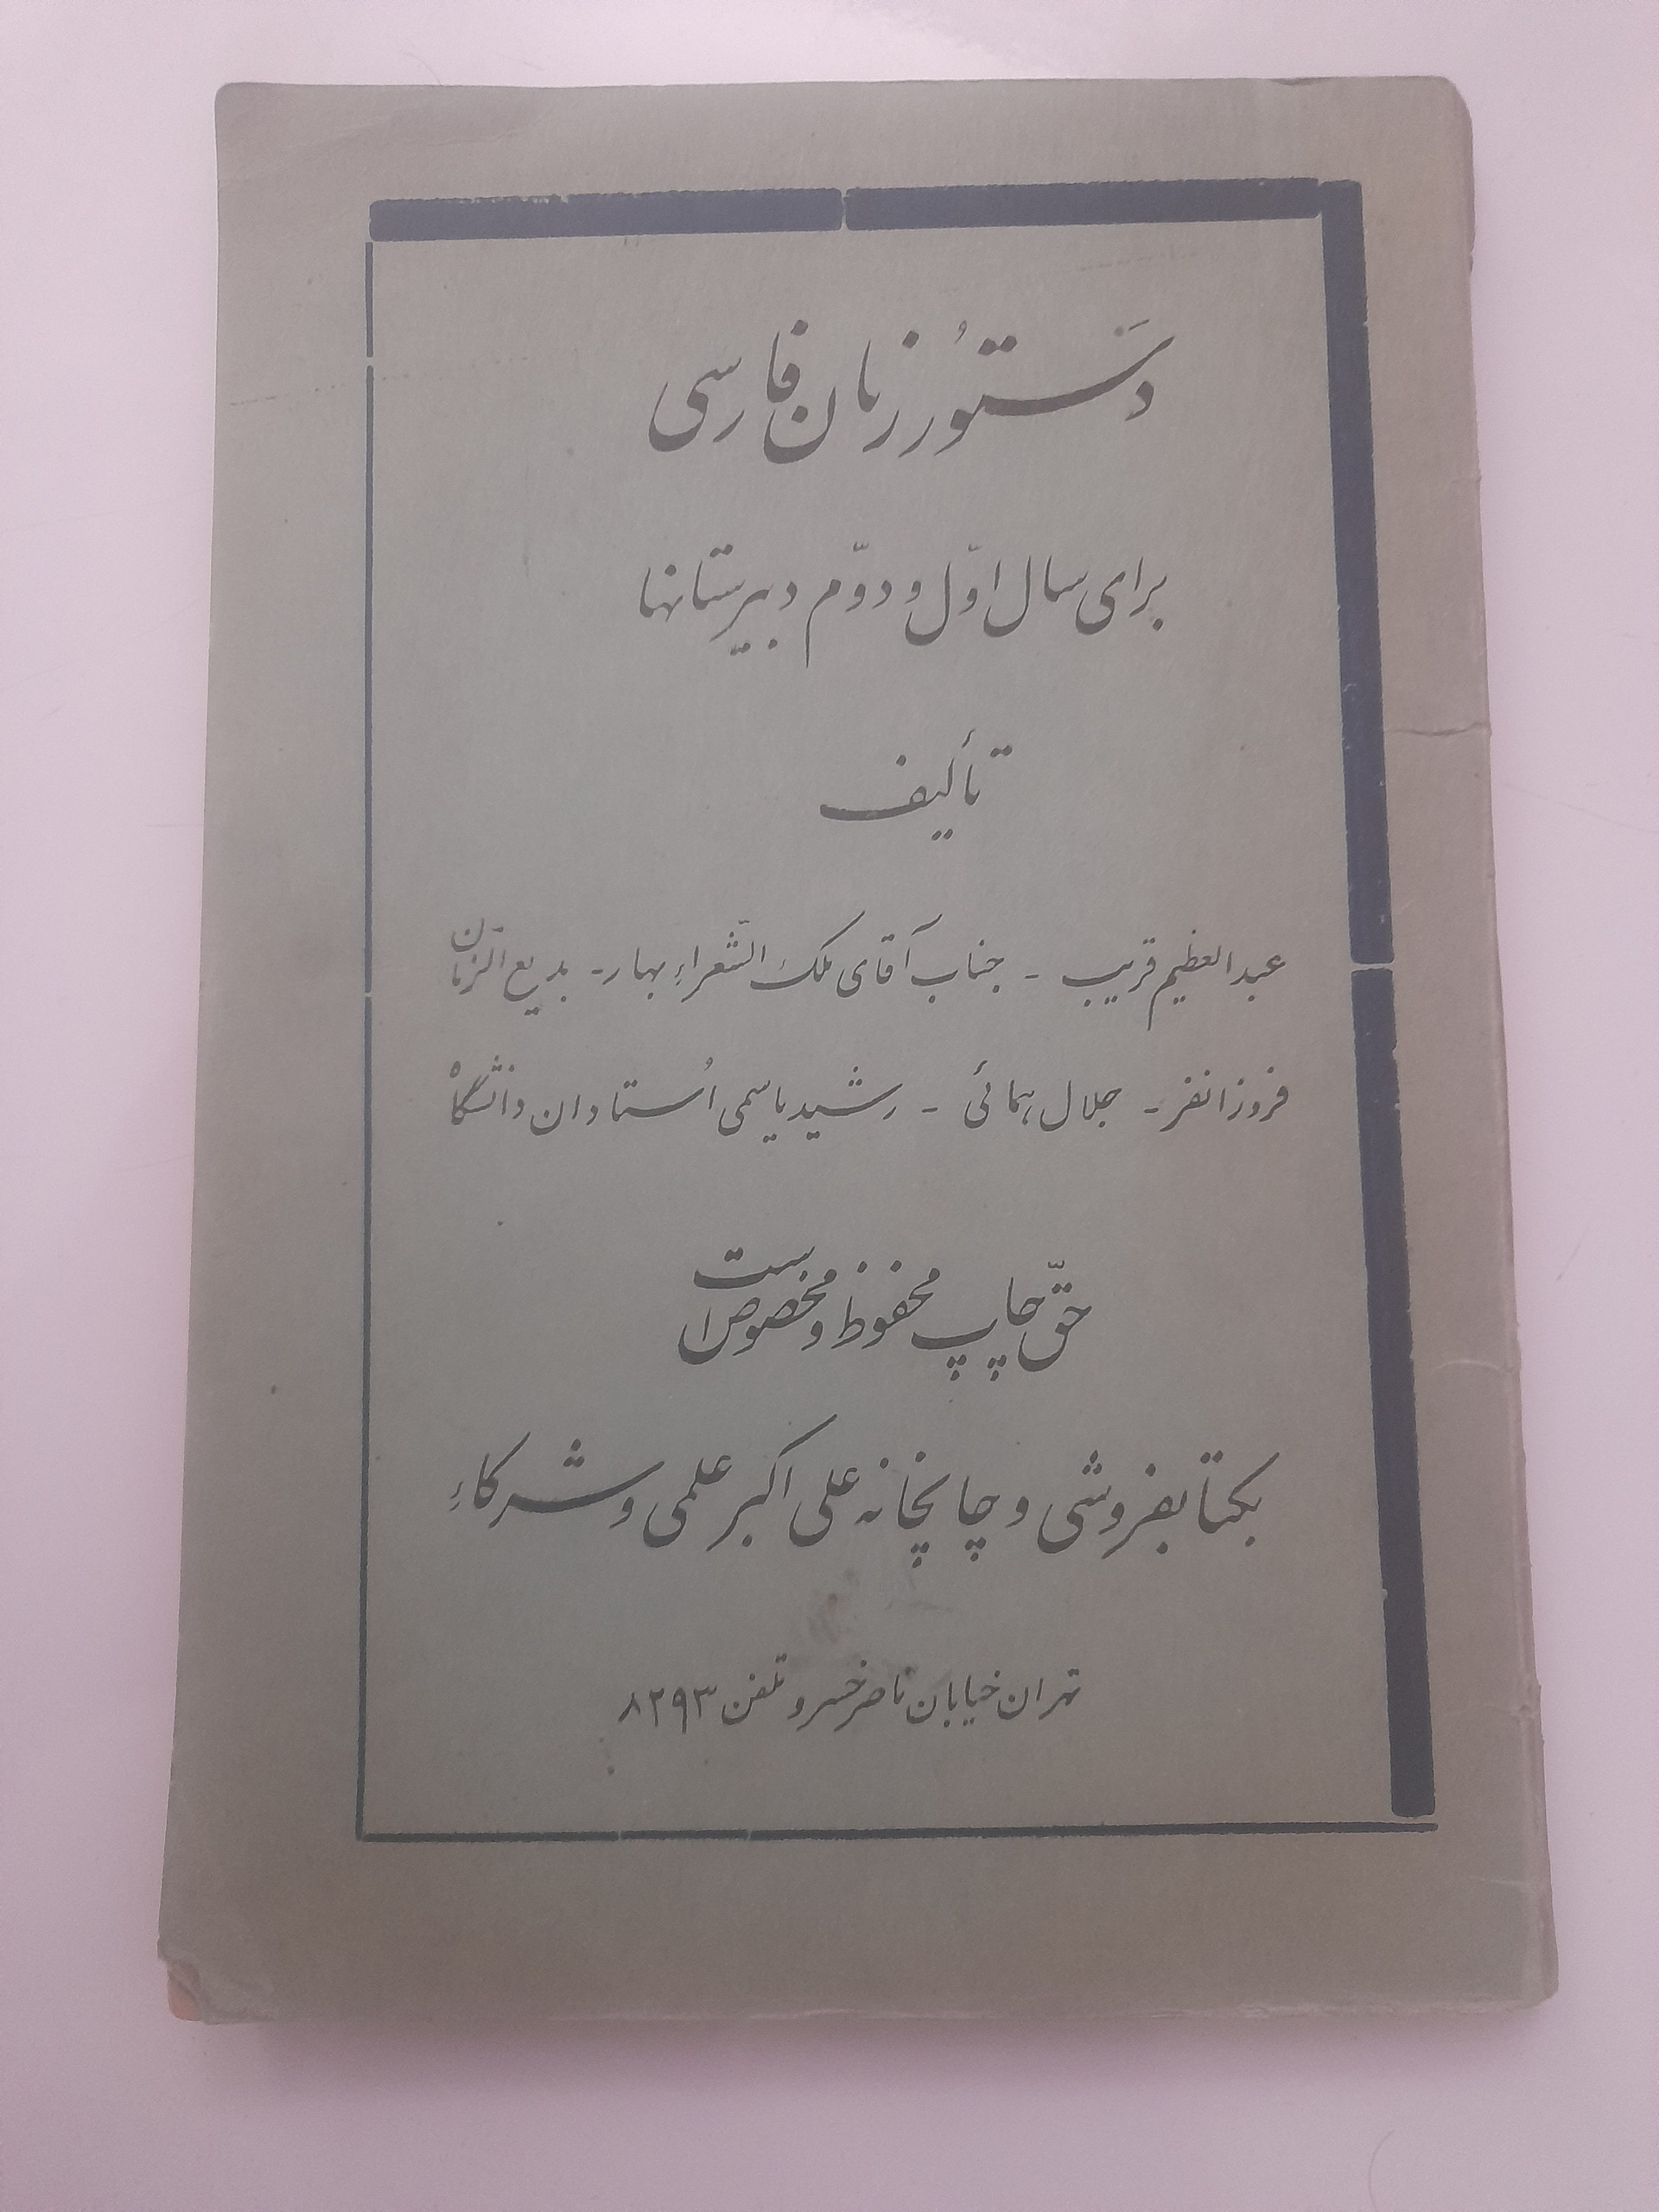 دَستوُر زبان فارسی
برای سال اوّل و دوّم دبیرستانها
تألیف
عبدالعظیم قریب - جناب آقای ملک الشّعراءِ بهار - بدیع الزّمان
فروزانفر - جلال همائی - رشید یاسمی اُستادان دانشگاهْ
حقّ چاپ محفوظ و مخصوص است
بکتابفروشی و چاپخانه علی اکبر علمی و شرکاءِ
تهران خیابان ناصر خسرو تلفن ۸۲۹۳